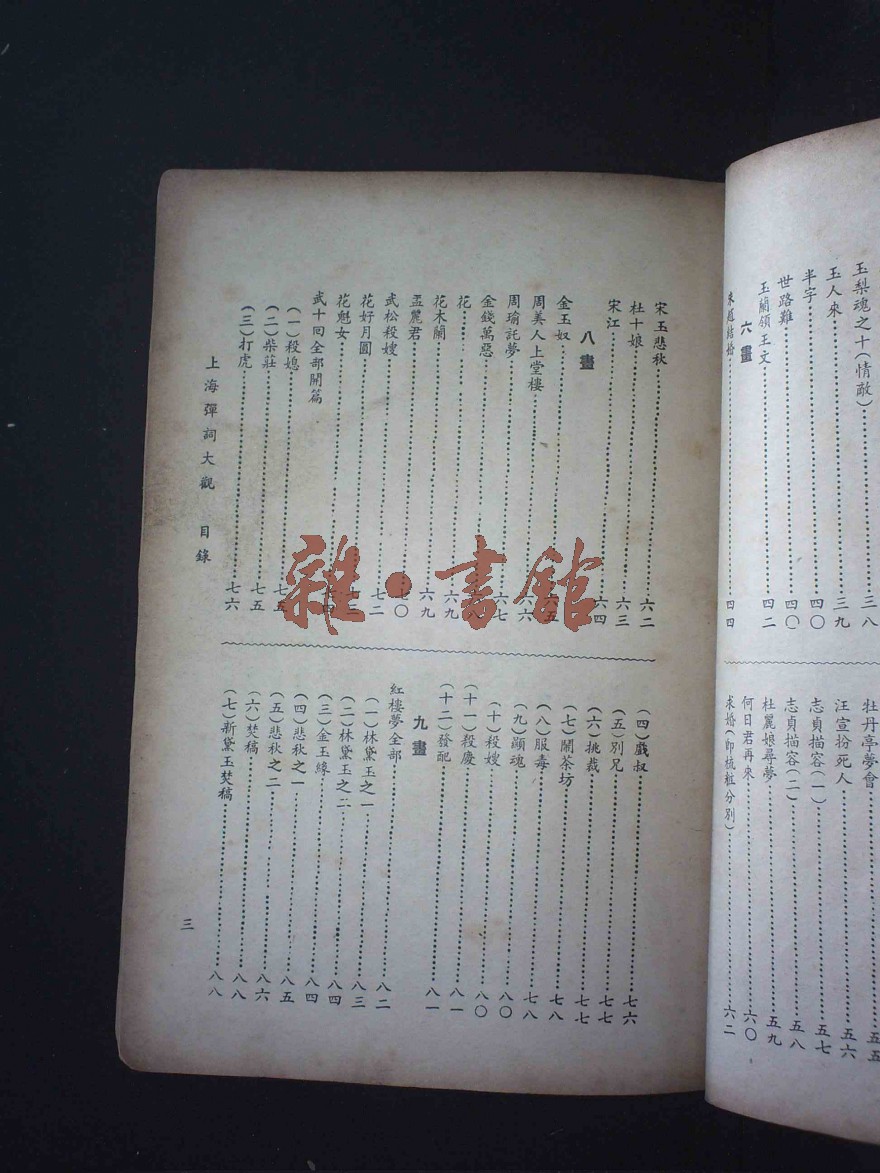 玉梨魂之十(情敵)……三八
玉人來……三九
半字……四〇
世路難……四〇
玉蘭領王文……四二
六畫
朱趙結婚……四四
牡丹亭夢會……五五
汪宣扮死人……五六
志貞描容(一)……五七
志貞描容(二)……五八
杜麗娘尋夢……五九
何日君再來……六〇
求婚(即梳粧分別)……六二
宋玉悲秋……六二
杜十娘……六三
宋江……六四
八畫
金玉奴……六五
周美人上堂樓……六六
周瑜託夢……六七
金錢萬惡……
花……六九
花木蘭……六九
孟麗君……七〇
武松殺嫂……七二
花好月圓……七三
花魁女……七四
武十回全部開篇
(一)殺媳……七五
(二)柴莊……七五
(三)打虎……七六
(四)戲叔……七六
(五)別兄……七七
(六)挑裁……七七
(七)鬧茶坊……七八
(八)服毒……七八
(九)顯魂……八〇
(十)殺嫂……八〇
(十一)殺慶……八一
(十二)發配……八一
九畫
紅樓夢全部……八二
(一)林黛玉之一……八三
(二)林黛玉之二……八四
(三)金玉緣……八四
(四)悲秋之一……八五
(五)悲秋之二……八六
(六)焚稿……八八
(七)新黛玉焚稿……八八
上海彈詞大觀 目錄
三
雜·書館